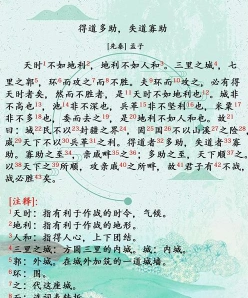 得道多助，失道寡助
[先秦] 孟子
天时¹不如地利²，地利不如人和³。三里之城⁴，七
里之郭⁵，环⁶而攻之⁷而不胜。夫⁹环而¹⁰攻之，必有得
天时者矣，然而不胜者，是¹¹天时不如地利也¹²。城非
不高也¹³，池¹⁴非不深也，兵革¹⁵非不坚利也¹⁶，米粟¹⁷
非不多¹⁸也，委而去之¹⁹，是地利不如人和也。故²¹
曰：域²²民不以²³封疆之界²⁴，固²⁵国不以山溪之险²⁸，
威²⁹天下不以兵革之利。得道者³²多助，失道者³³寡
助。寡助之至³⁴，亲戚畔³⁵之³⁶；多助之至，天下顺³⁷之。
以天下之³⁸所顺，攻亲戚之所畔，故⁴¹君子有⁴²不战，
战必胜⁴³矣。
[注释]:
¹天时：指有利于作战的时令，气候。
²地利：指有利于作战的地形。
³人和：指得人心，上下团结。
⁴三里之城：方圆三里的内城。城：内城。
⁵郭：外城，在城外加筑的一道城墙。
⁶环：围。
⁷之：代这座城。